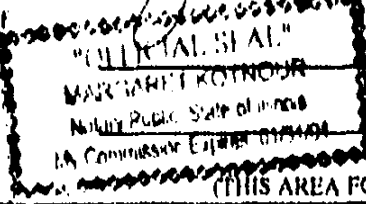 "OFFICIAL SEAL"
MARGARET KOTNOUR
Notary Public State of Illinois
My Commission Expires 01/04/04
(THIS AREA FO